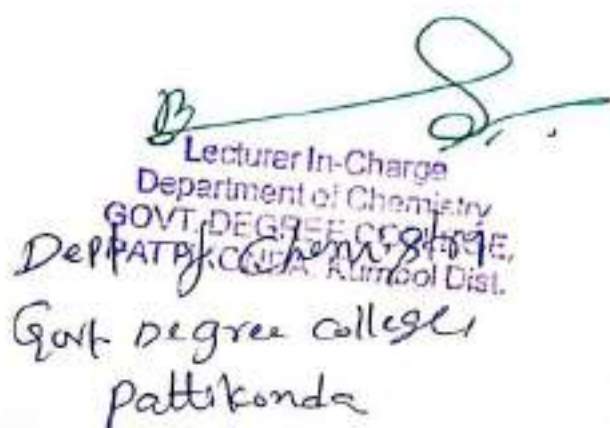 Lecturer In-Charge
Department of Chemistry
GOVT. DEGREE COLLEGE,
PATTIKONDA Kurnool Dist.
Dept of Chemistry
Govt Degree college,
pattikonda